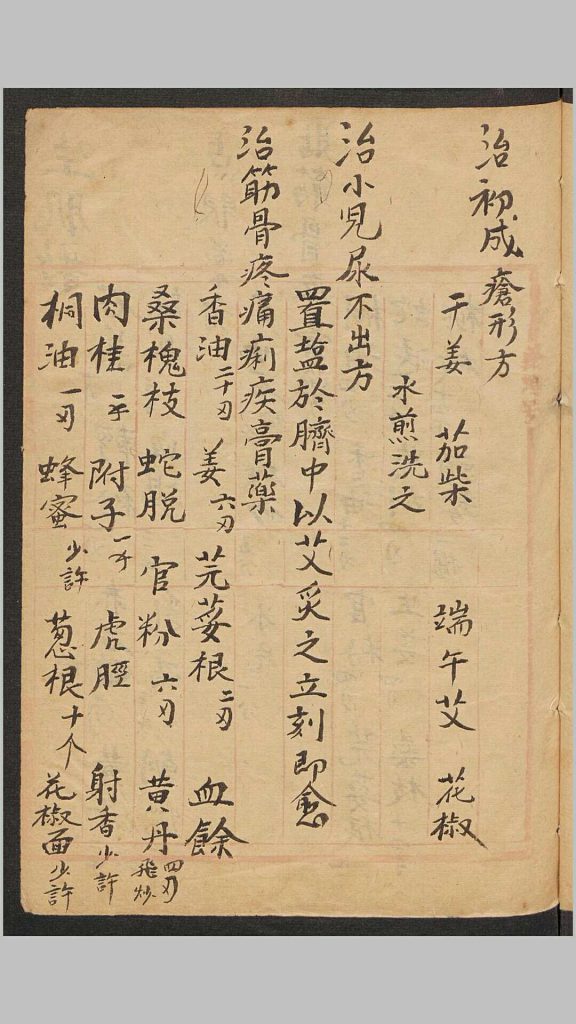 治初成瘡形方
干姜 茄柴 端午艾 花椒
水煎洗之
治小兒尿不出方
置塩於臍中以艾炙之立刻即愈
治筋骨疼痛痢疾膏藥
香油二十刃 姜六刃 芫荽根二刃 血餘
桑槐枝 蛇脱 官粉六刃 黄丹四刃飛炒
肉桂二手 附子一手 虎脛 射香少許
桐油一刃 蜂蜜少許 葱根十个 花椒面少許